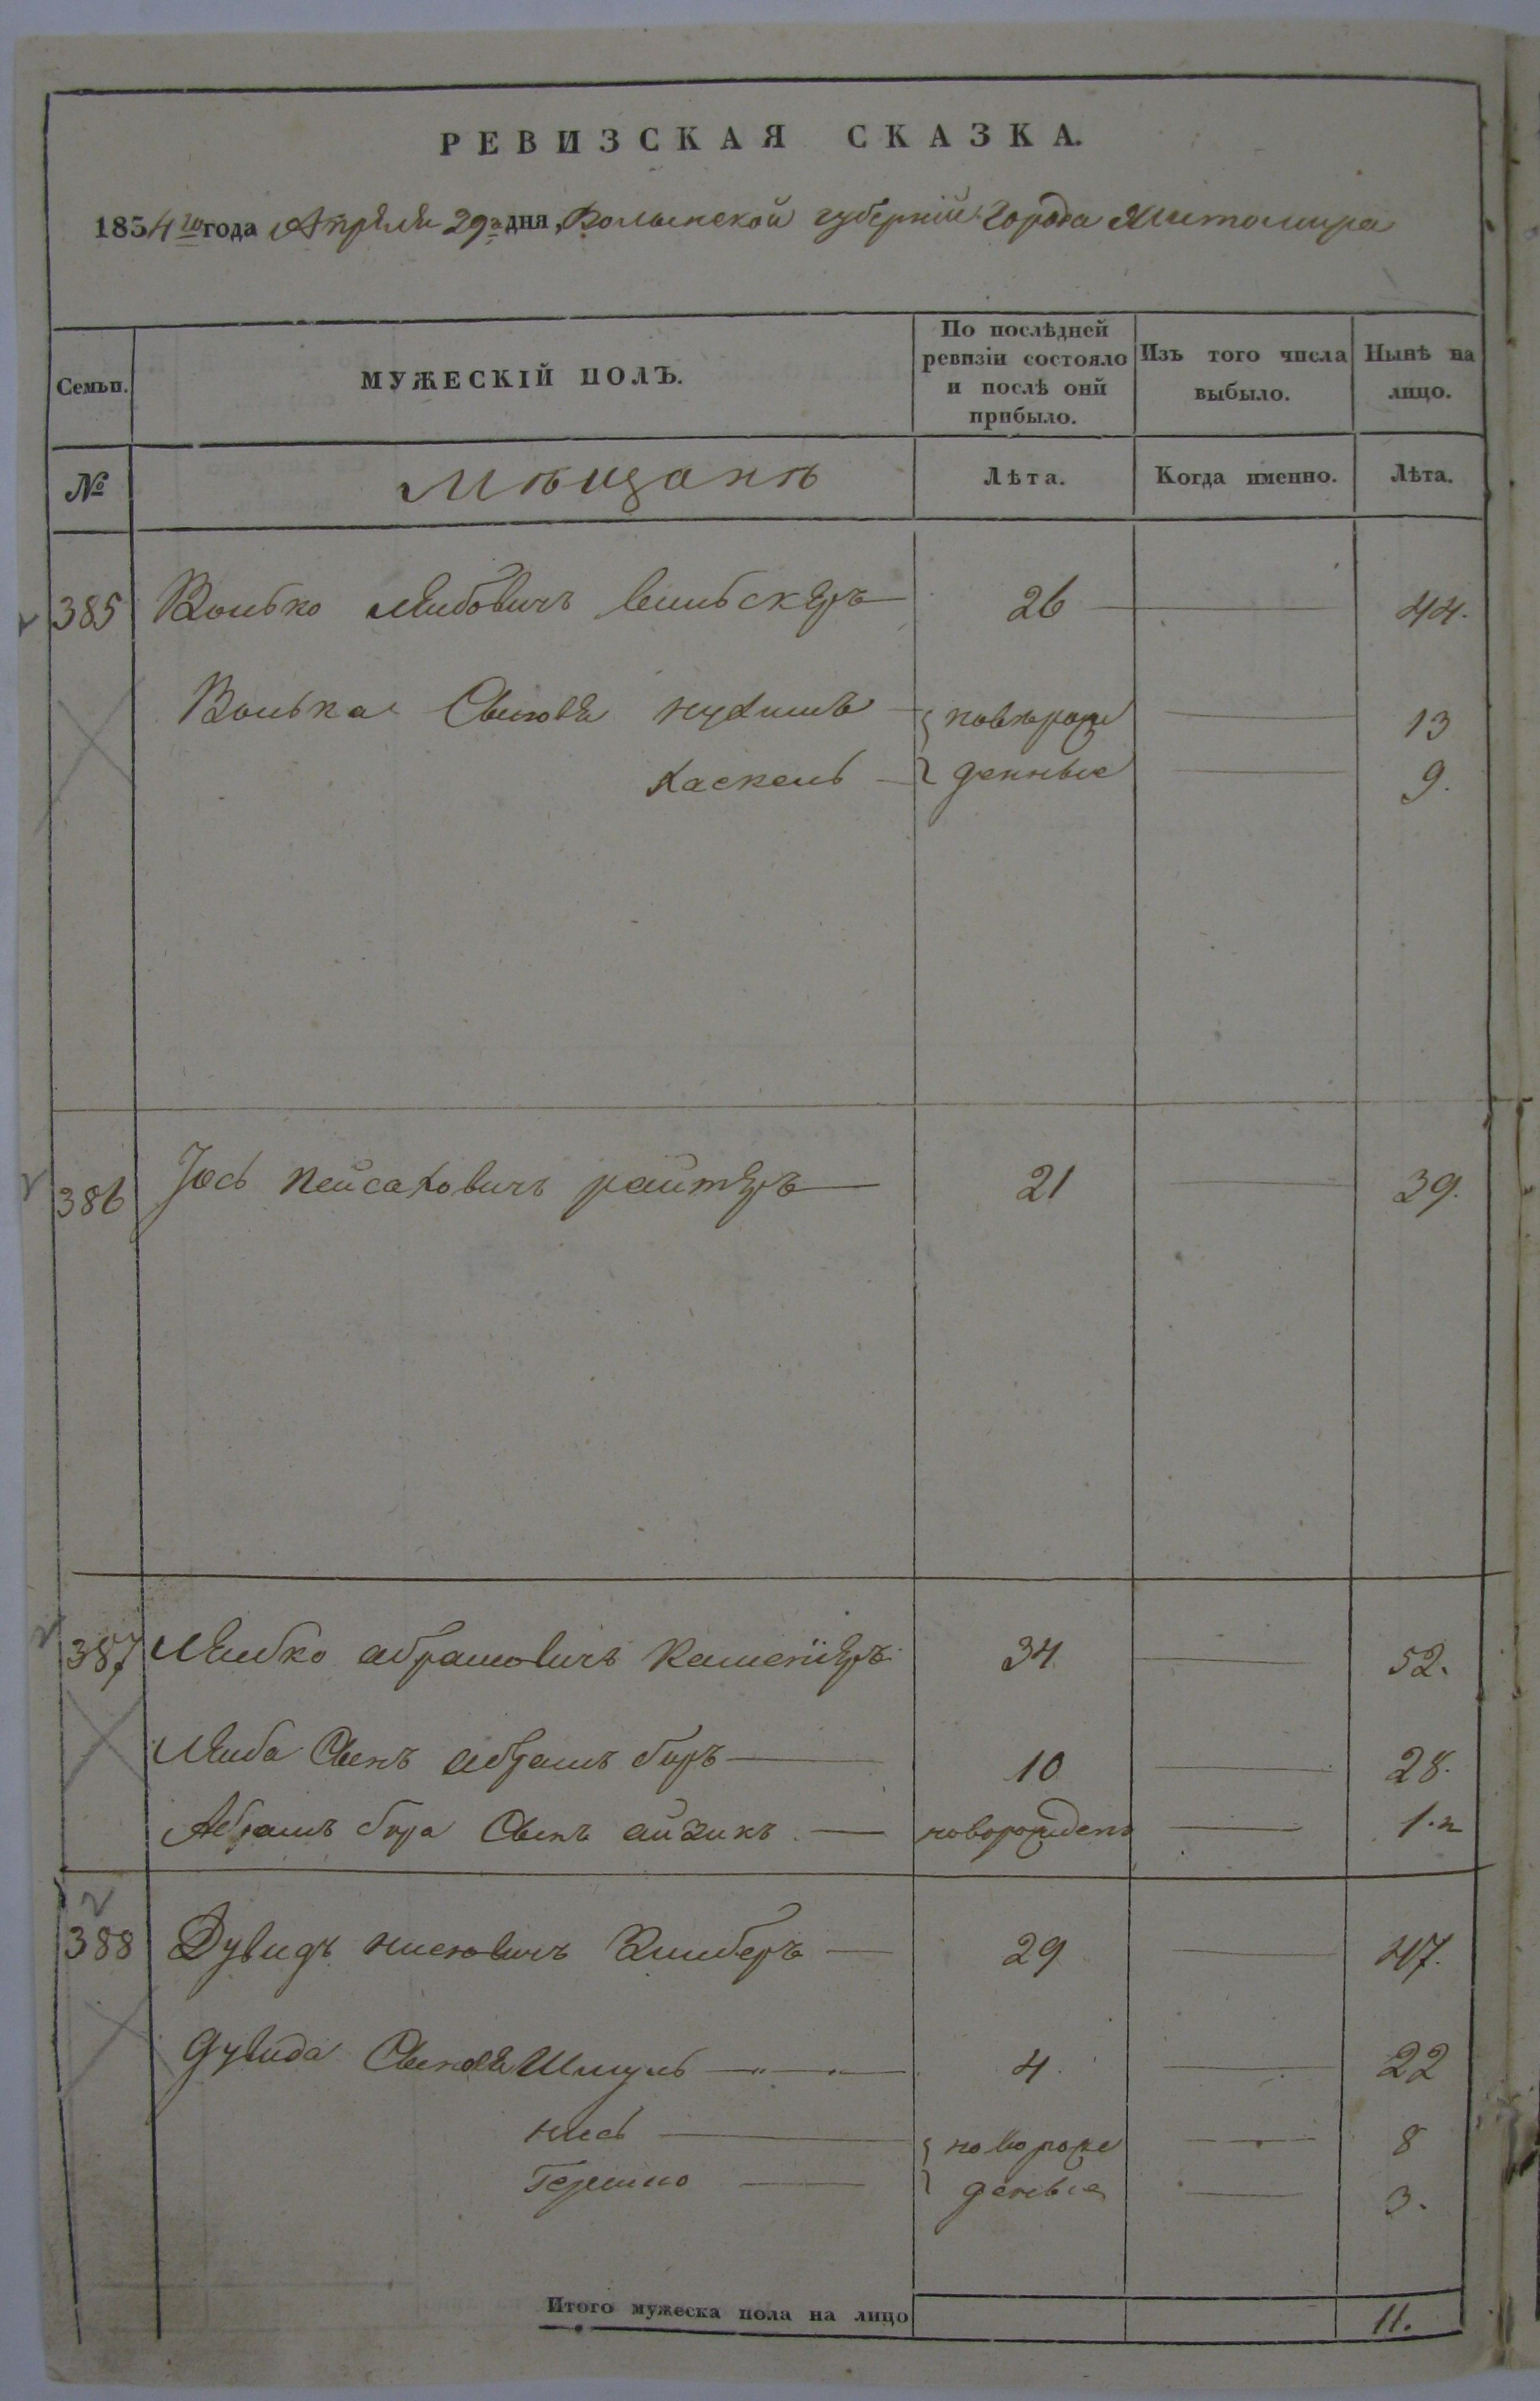 РЕВИЗСКАЯ СКАЗКА.
1854го года Апрѣля 29го дня, Волынской губерніи Города Житомира
Семьи.
МУЖЕСКІЙ ПОЛЪ.
По послѣдней ревизіи состояло и послѣ онй прибыло.
Изъ того числа выбыло.
Нынѣ на лицо.
№
Мѣщанѣ
Лѣта.
Когда именно.
Лѣта.
385 Волько Лейбовичъ 26 44.
Волька Сыновья Нухимъ новорож 13
Хаскель денные 9.
386 Іось Пейсаховичъ райтеръ 21 39.
387 Лейбко абрамовичъ Каменіеръ 34 52.
Лейба Сынъ абрамъ беръ 10 28.
Абрамъ бера Сынъ айзикъ новорожденъ 1.н
388 Дувидъ нисювичъ Зинберъ 29 47.
Дувида Сыновья Шмуль 4 22
нись новорож 8
Гершко деные 3.
Итого мужеска пола на лицо 11.